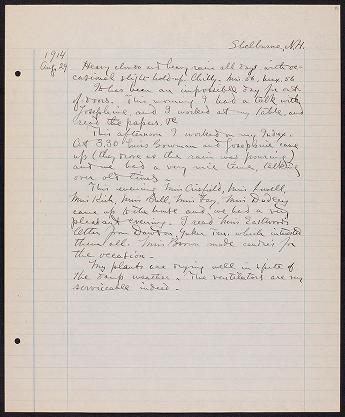 Shelburne, N.H.
1914
Aug. 29 Heavy clouds and heavy rain all day with oc-
casional slight hold-up. Chilly. Min 56. Max. 56
It has been an impossible day for out
of doors. This morning I had a talk with
Josephine, and I worked at my table, and
read the papers, &c
This afternoon I worked on my Index.
At 3.30 Miss Bowman and Josephine came
up (they drove as the rain was pouring)
and we had a very nice time, talking
over old times.
This evening Miss Miss Lowell,
Miss Miss Ball, Miss Fay, Miss Dudley
came up to the house and we had a very
pleasant evening. I read Miss Eastwood's
letter from Dawson, Yukon Terr. which interested
them all. Miss Brown made candies for
the occasion.
My plants are drying well in spite of
the damp weather. The ventilators are very
serviceable indeed.